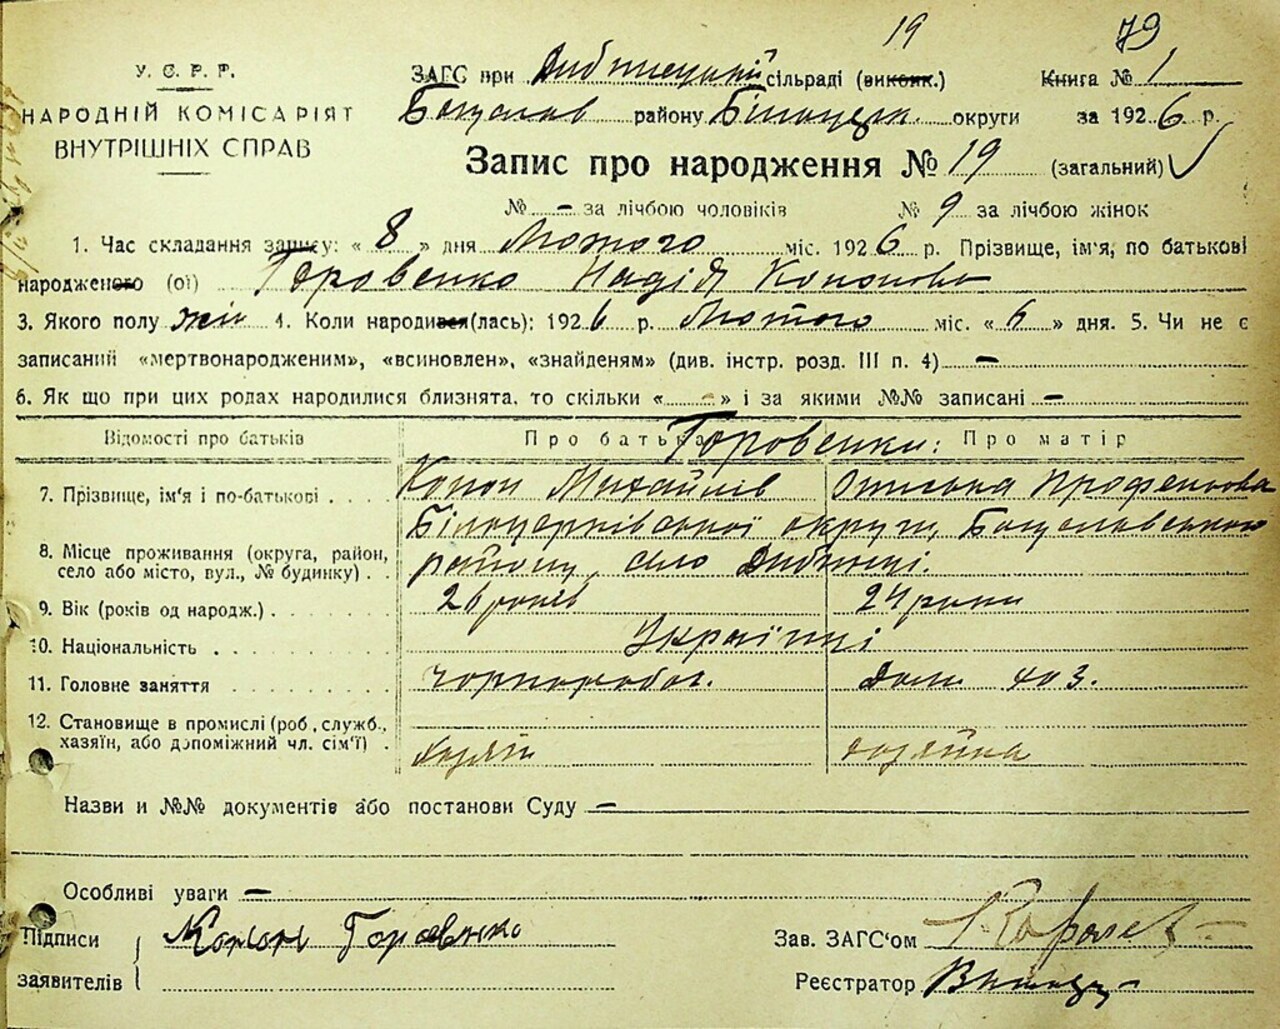 19 79
У. С. Р. Р.
НАРОДНІЙ КОМІСАРІЯТ
ВНУТРІШНІХ СПРАВ
ЗАГС при Дибинецькій сільраді (виконк.) Книга № 1
Богуслав району Білоцерк. округи за 1926 р.
Запис про народження № 19 (загальний)
№ - за лічбою чоловіків № 9 за лічбою жінок
1. Час складання запису: « 8 » дня Лютого міс. 1926 р. Прізвище, ім'я, по батькові
народженого (ої) Горовенко Надія Кононова
3. Якого полу жін 4. Коли народився(лась): 1926 р. Лютого міс. « 6 » дня. 5. Чи не є
записаний «мертвонародженим», «всиновлен», «знайденям» (див. інстр. розд. III п. 4) -
6. Як що при цих родах народилися близнята, то скільки « - » і за якими №№ записані -
Відомості про батьків Про батька Горовенки: Про матір
7. Прізвище, ім'я і по-батькові Конон Михайлів Ониська
Білоцерківської округи, Богуславського
8. Місце проживання (округа, район,
село або місто, вул., № будинку) району, село Дибинці.
9. Вік (років од народж.) 26 років 24 роки
10. Національність Українці
11. Головне заняття Чорнороб. Дом. хоз.
12. Становище в промислі (роб., служб.,
хазяїн, або допоміжний чл. сім'ї) хазяїн хазяйка
Назви и №№ документів або постанови Суду -
Особливі уваги -
Підписи
заявителів Конон Горовенко
Зав. ЗАГС'ом
Реєстратор